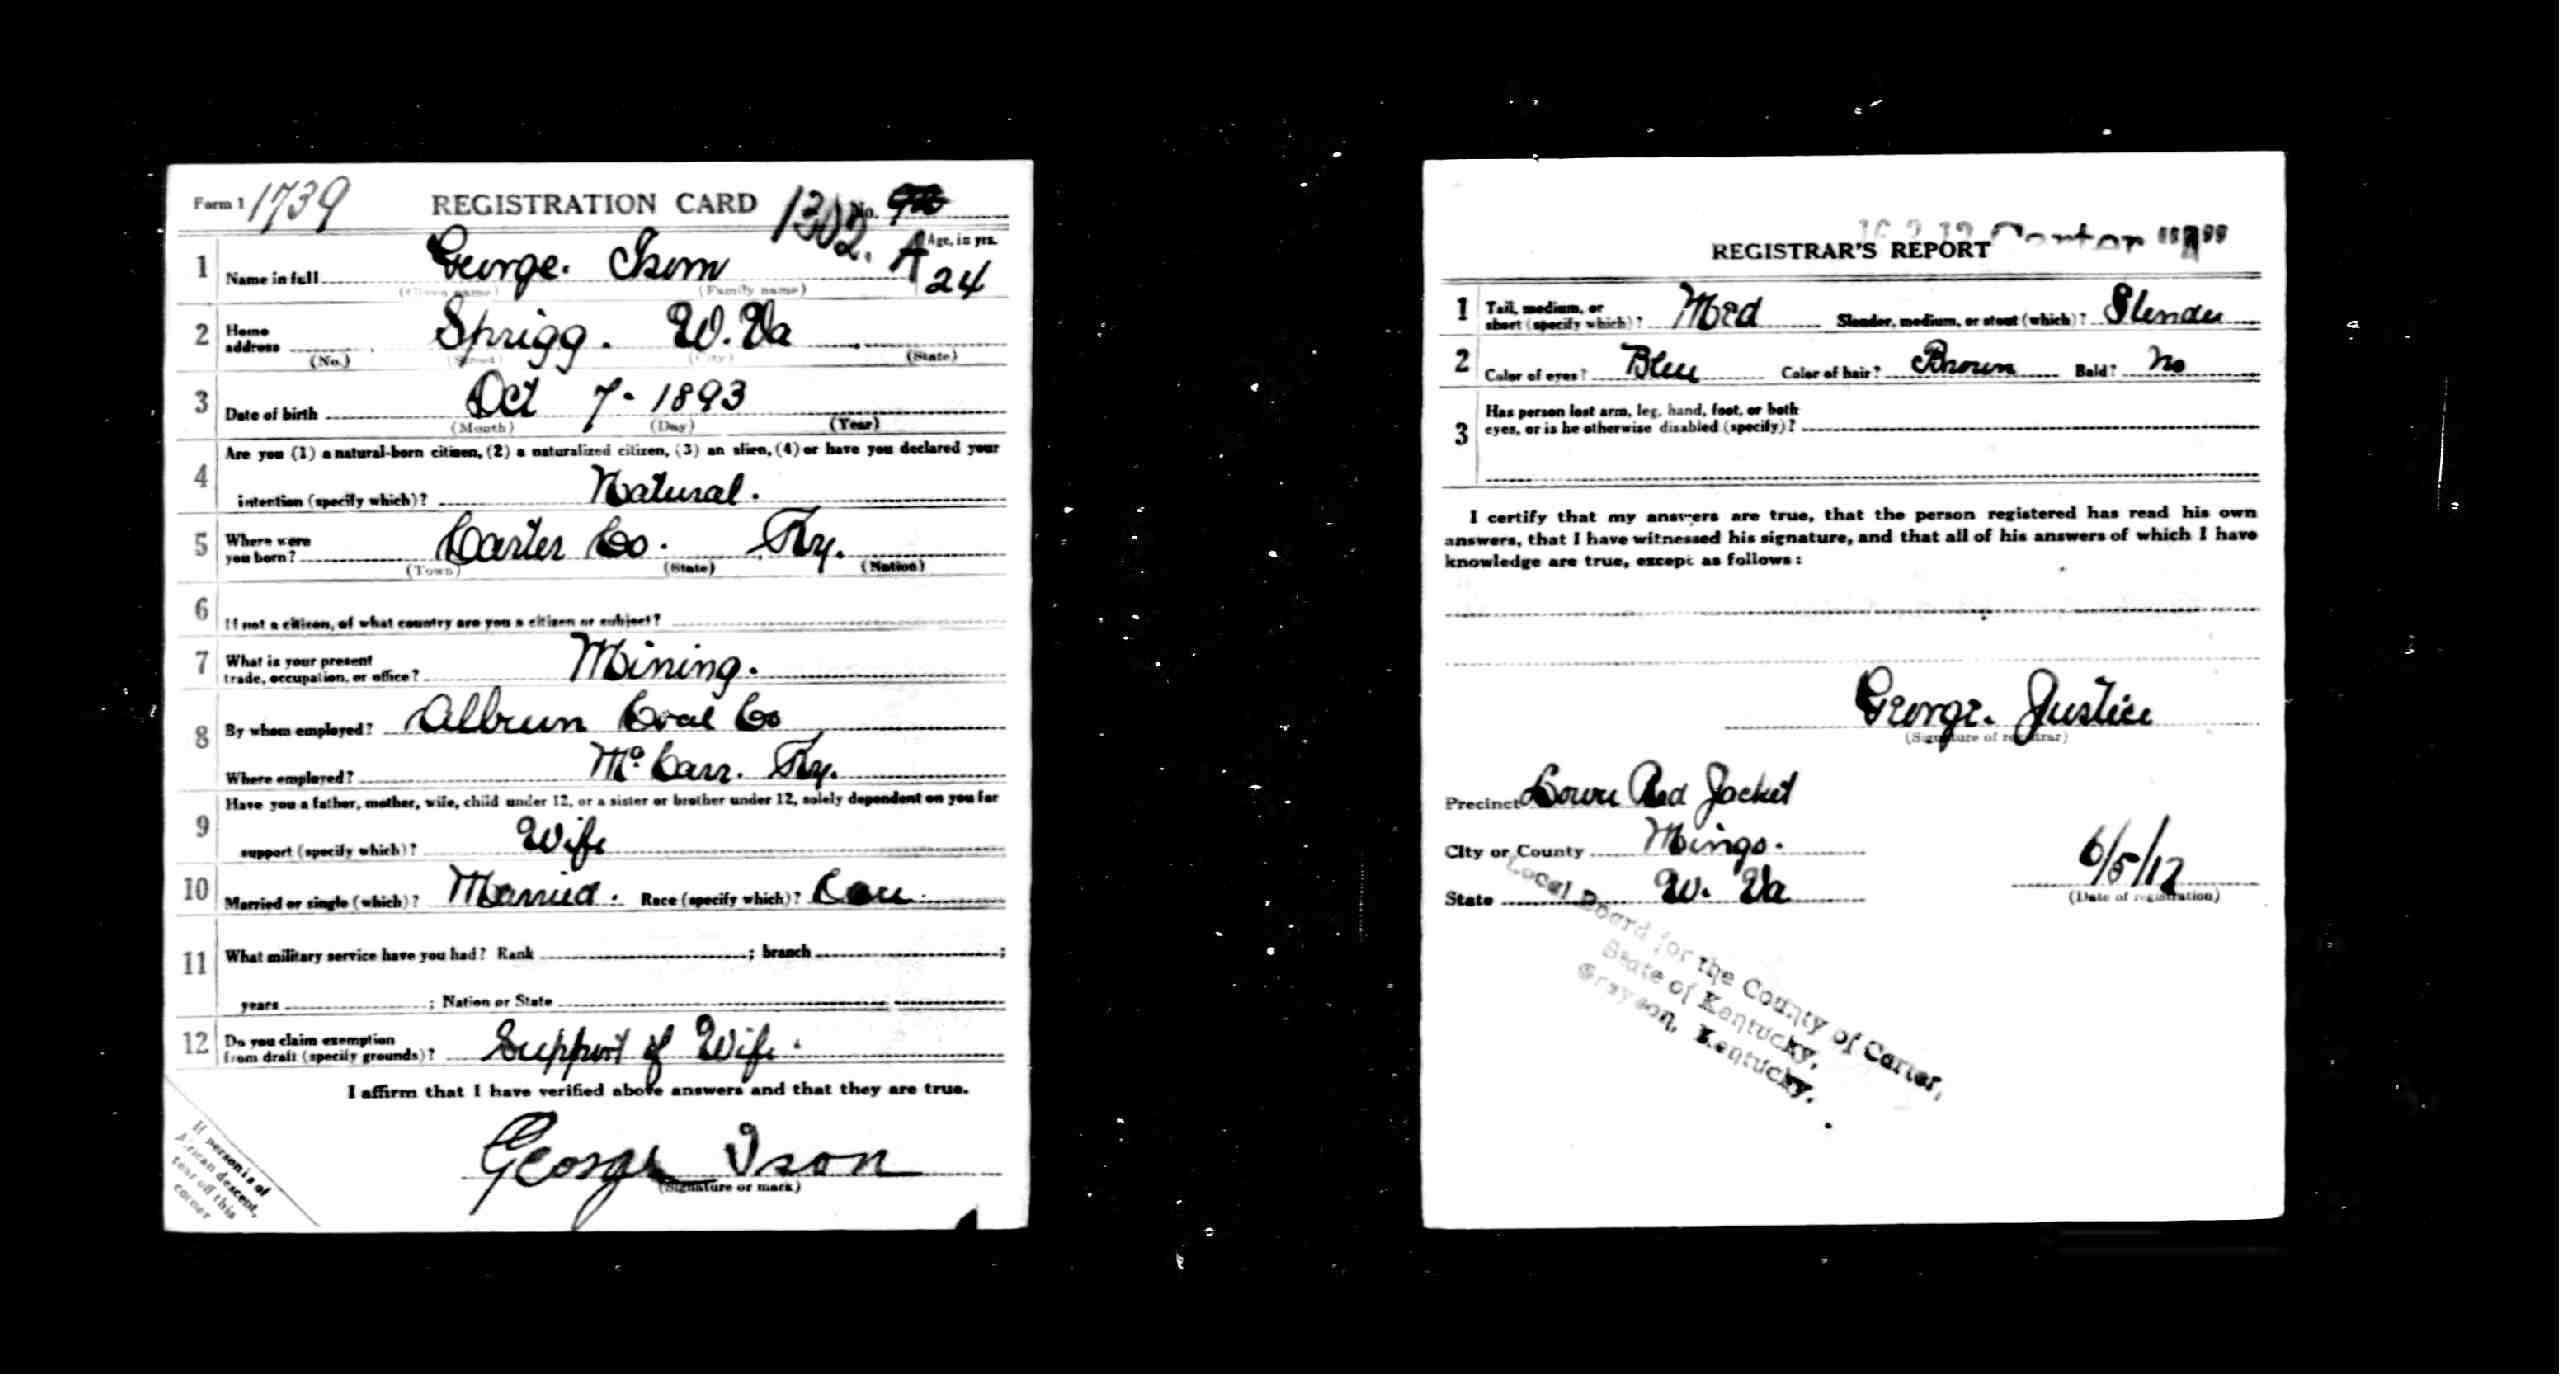 Form 1 1739 REGISTRATION CARD 1302. No.
A Age, in yrs.
1 Name in full George. Isom 24
(Given name) (Family name)
2 Home address Sprigg. W. Va
(No.) (Street) (City) (State)
3 Date of birth Oct 7 - 1893
(Month) (Day) (Year)
4 Are you (1) a natural-born citizen, (2) a naturalized citizen, (3) an alien, (4) or have you declared your
intention (specify which)? Natural.
5 Where were you born? Carter Co. Ky.
(Town) (State) (Nation)
6 If not a citizen, of what country are you a citizen or subject?
7 What is your present
trade, occupation, or office? Mining.
8 By whom employed? Alburn Coal Co
Where employed? McCarr. Ky.
9 Have you a father, mother, wife, child under 12, or a sister or brother under 12, solely dependent on you for
support (specify which)? Wife
10 Married or single (which)? Married. Race (specify which)? Cau.
11 What military service have you had? Rank ; branch ;
years ; Nation or State
12 Do you claim exemption
from draft (specify grounds)? Support of Wife.
I affirm that I have verified above answers and that they are true.
George Ison
(Signature or mark)
If person is of
African descent,
tear off this
corner
Carter "A"
REGISTRAR'S REPORT
1 Tall, medium, or
short (specify which)? Med Slender, medium, or stout (which)? Slender
2 Color of eyes? Blue Color of hair? Brown Bald? No
3 Has person lost arm, leg, hand, foot, or both
eyes, or is he otherwise disabled (specify)?
I certify that my answers are true, that the person registered has read his own
answers, that I have witnessed his signature, and that all of his answers of which I have
knowledge are true, except as follows:
George. Justice
(Signature of registrar)
Precinct Lower Red Jacket
City or County Mingo.
State W. Va 6/5/17
(Date of registration)
Local Board for the County of Carter,
State of Kentucky,
Grayson, Kentucky.